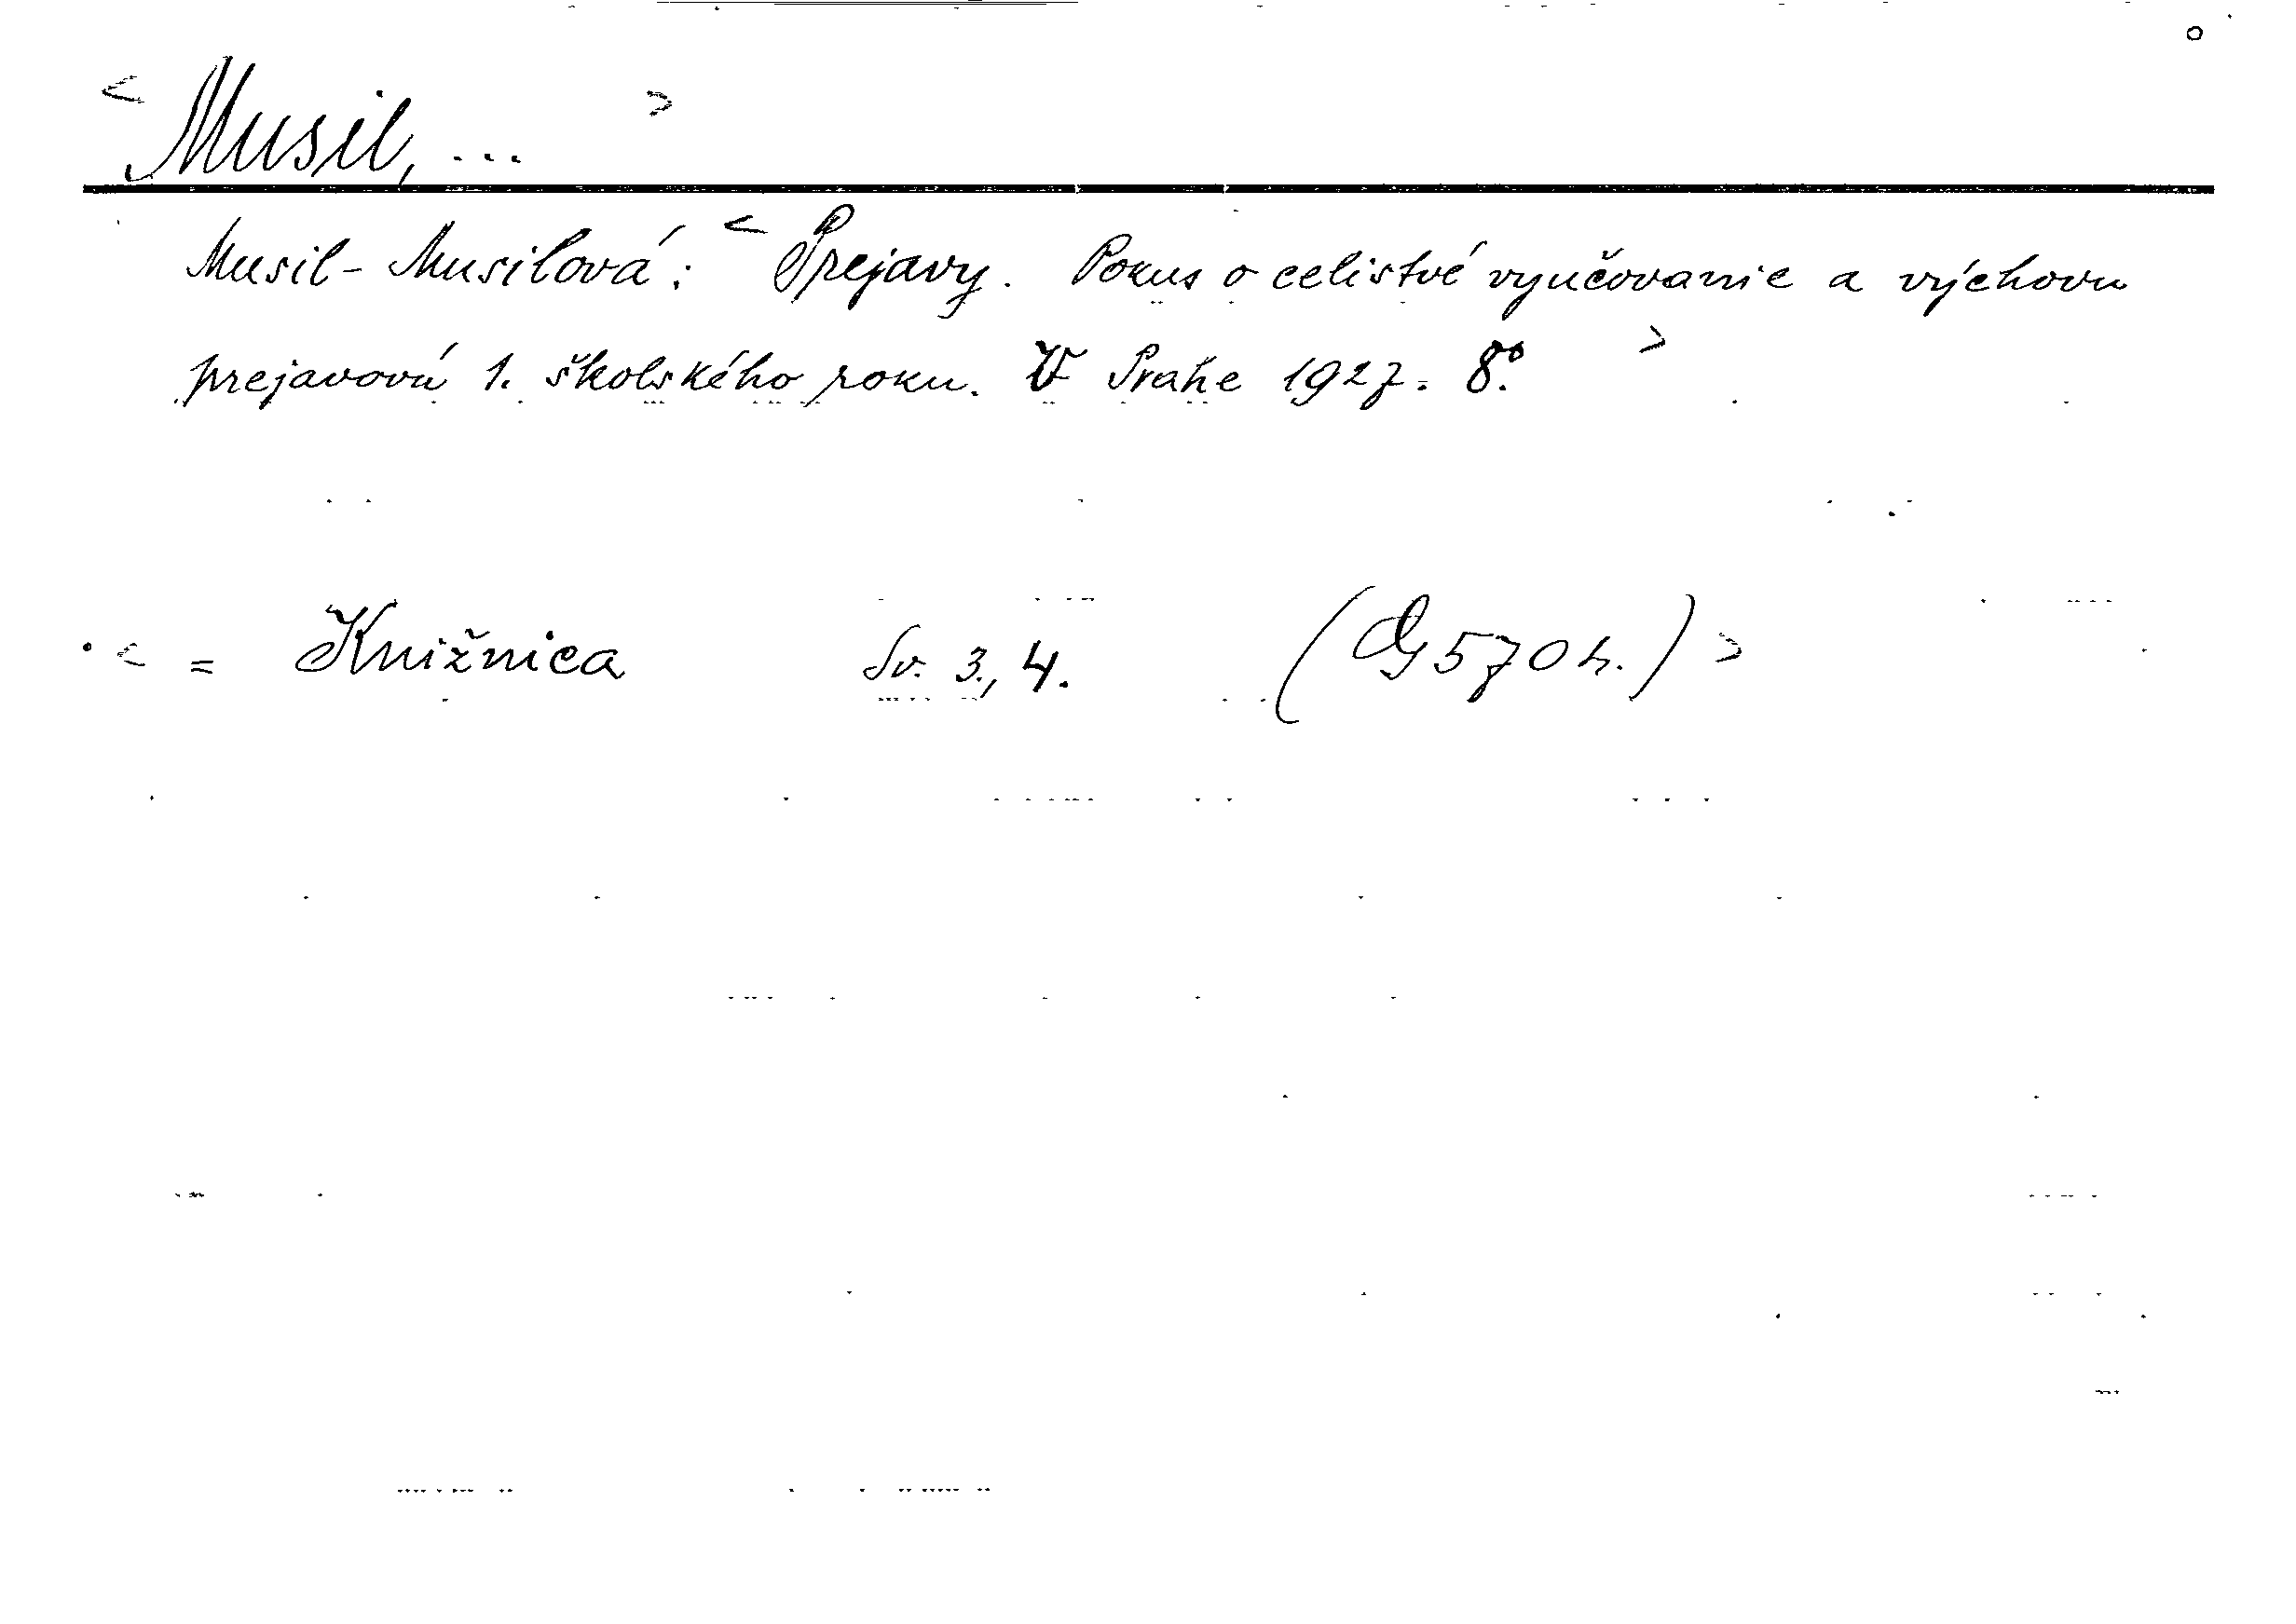 < Musil, ... >
Musil - Musilová: < Prejavy. Pokus o celistvé vyučovanie a výchovu
prejavovú 1. školského roku. V Prahe 1927. 8°. >
< = Knižnica Sv. 3., 4. ( 570 h.) >